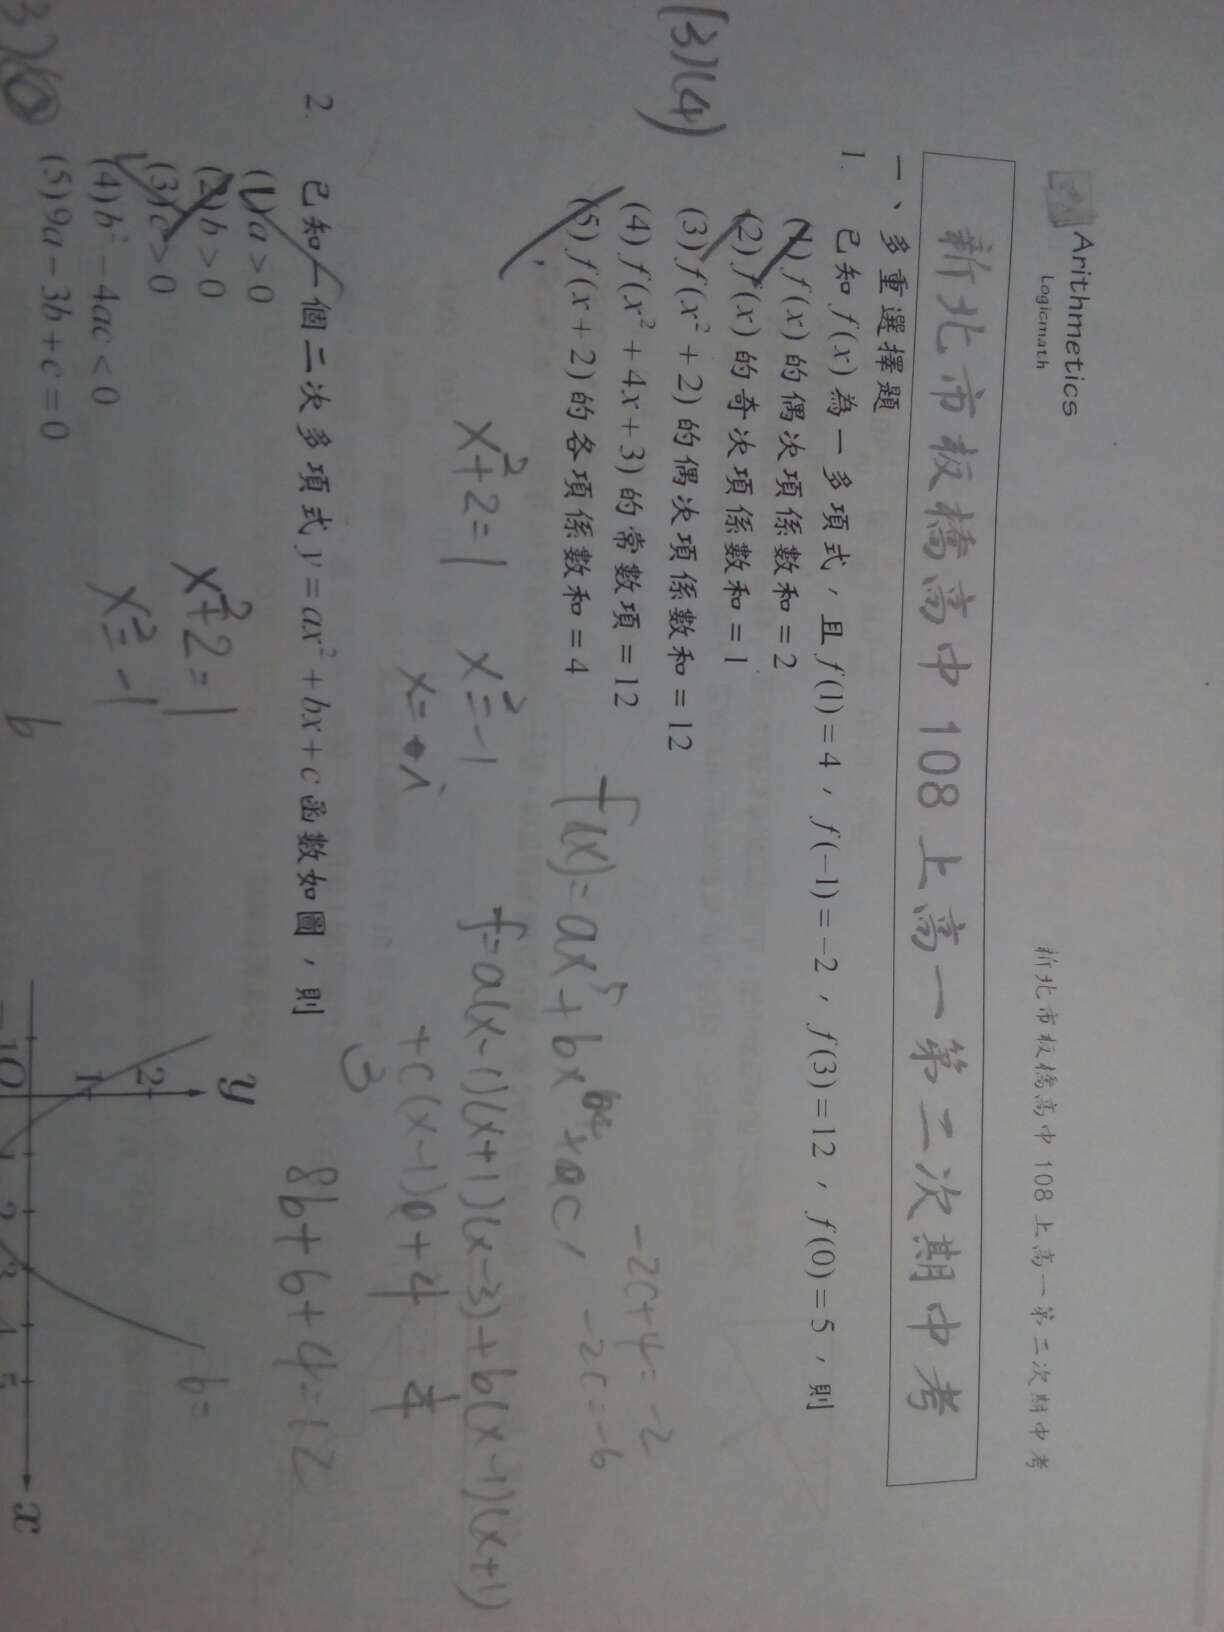 Arithmetics
Logicmath
新北市板橋高中 108 上高一第二次期中考
新北市板橋高中 108 上高一第二次期中考
一、多重選擇題
(3)(4)
1. 已知 f(x) 為一多項式，且 f(1)=4，f(-1)=-2，f(3)=12，f(0)=5，則
(1) f(x) 的偶次項係數和=2
(2) f(x) 的奇次項係數和=1
(3) f(x²+2) 的偶次項係數和=12
(4) f(x²+4x+3) 的常數項=12
(5) f(x+2) 的各項係數和=4
-2c+4=-2
-2c=-6
x²+2=1
x²=-1
f=a(x-1)(x+1)(x-3)+b(x-1)(x+1)
+c(x-1)+4
3
8b+6+4=12
2. 已知一個二次多項式 y=ax²+bx+c 函數如圖，則
(1) a>0
(2) b>0
(3) c>0
(4) b²-4ac<0
(5) 9a-3b+c=0
x²+2=1
x²=-1
b
b=
y
2
1
-1 O 1 2 3 4 5 x